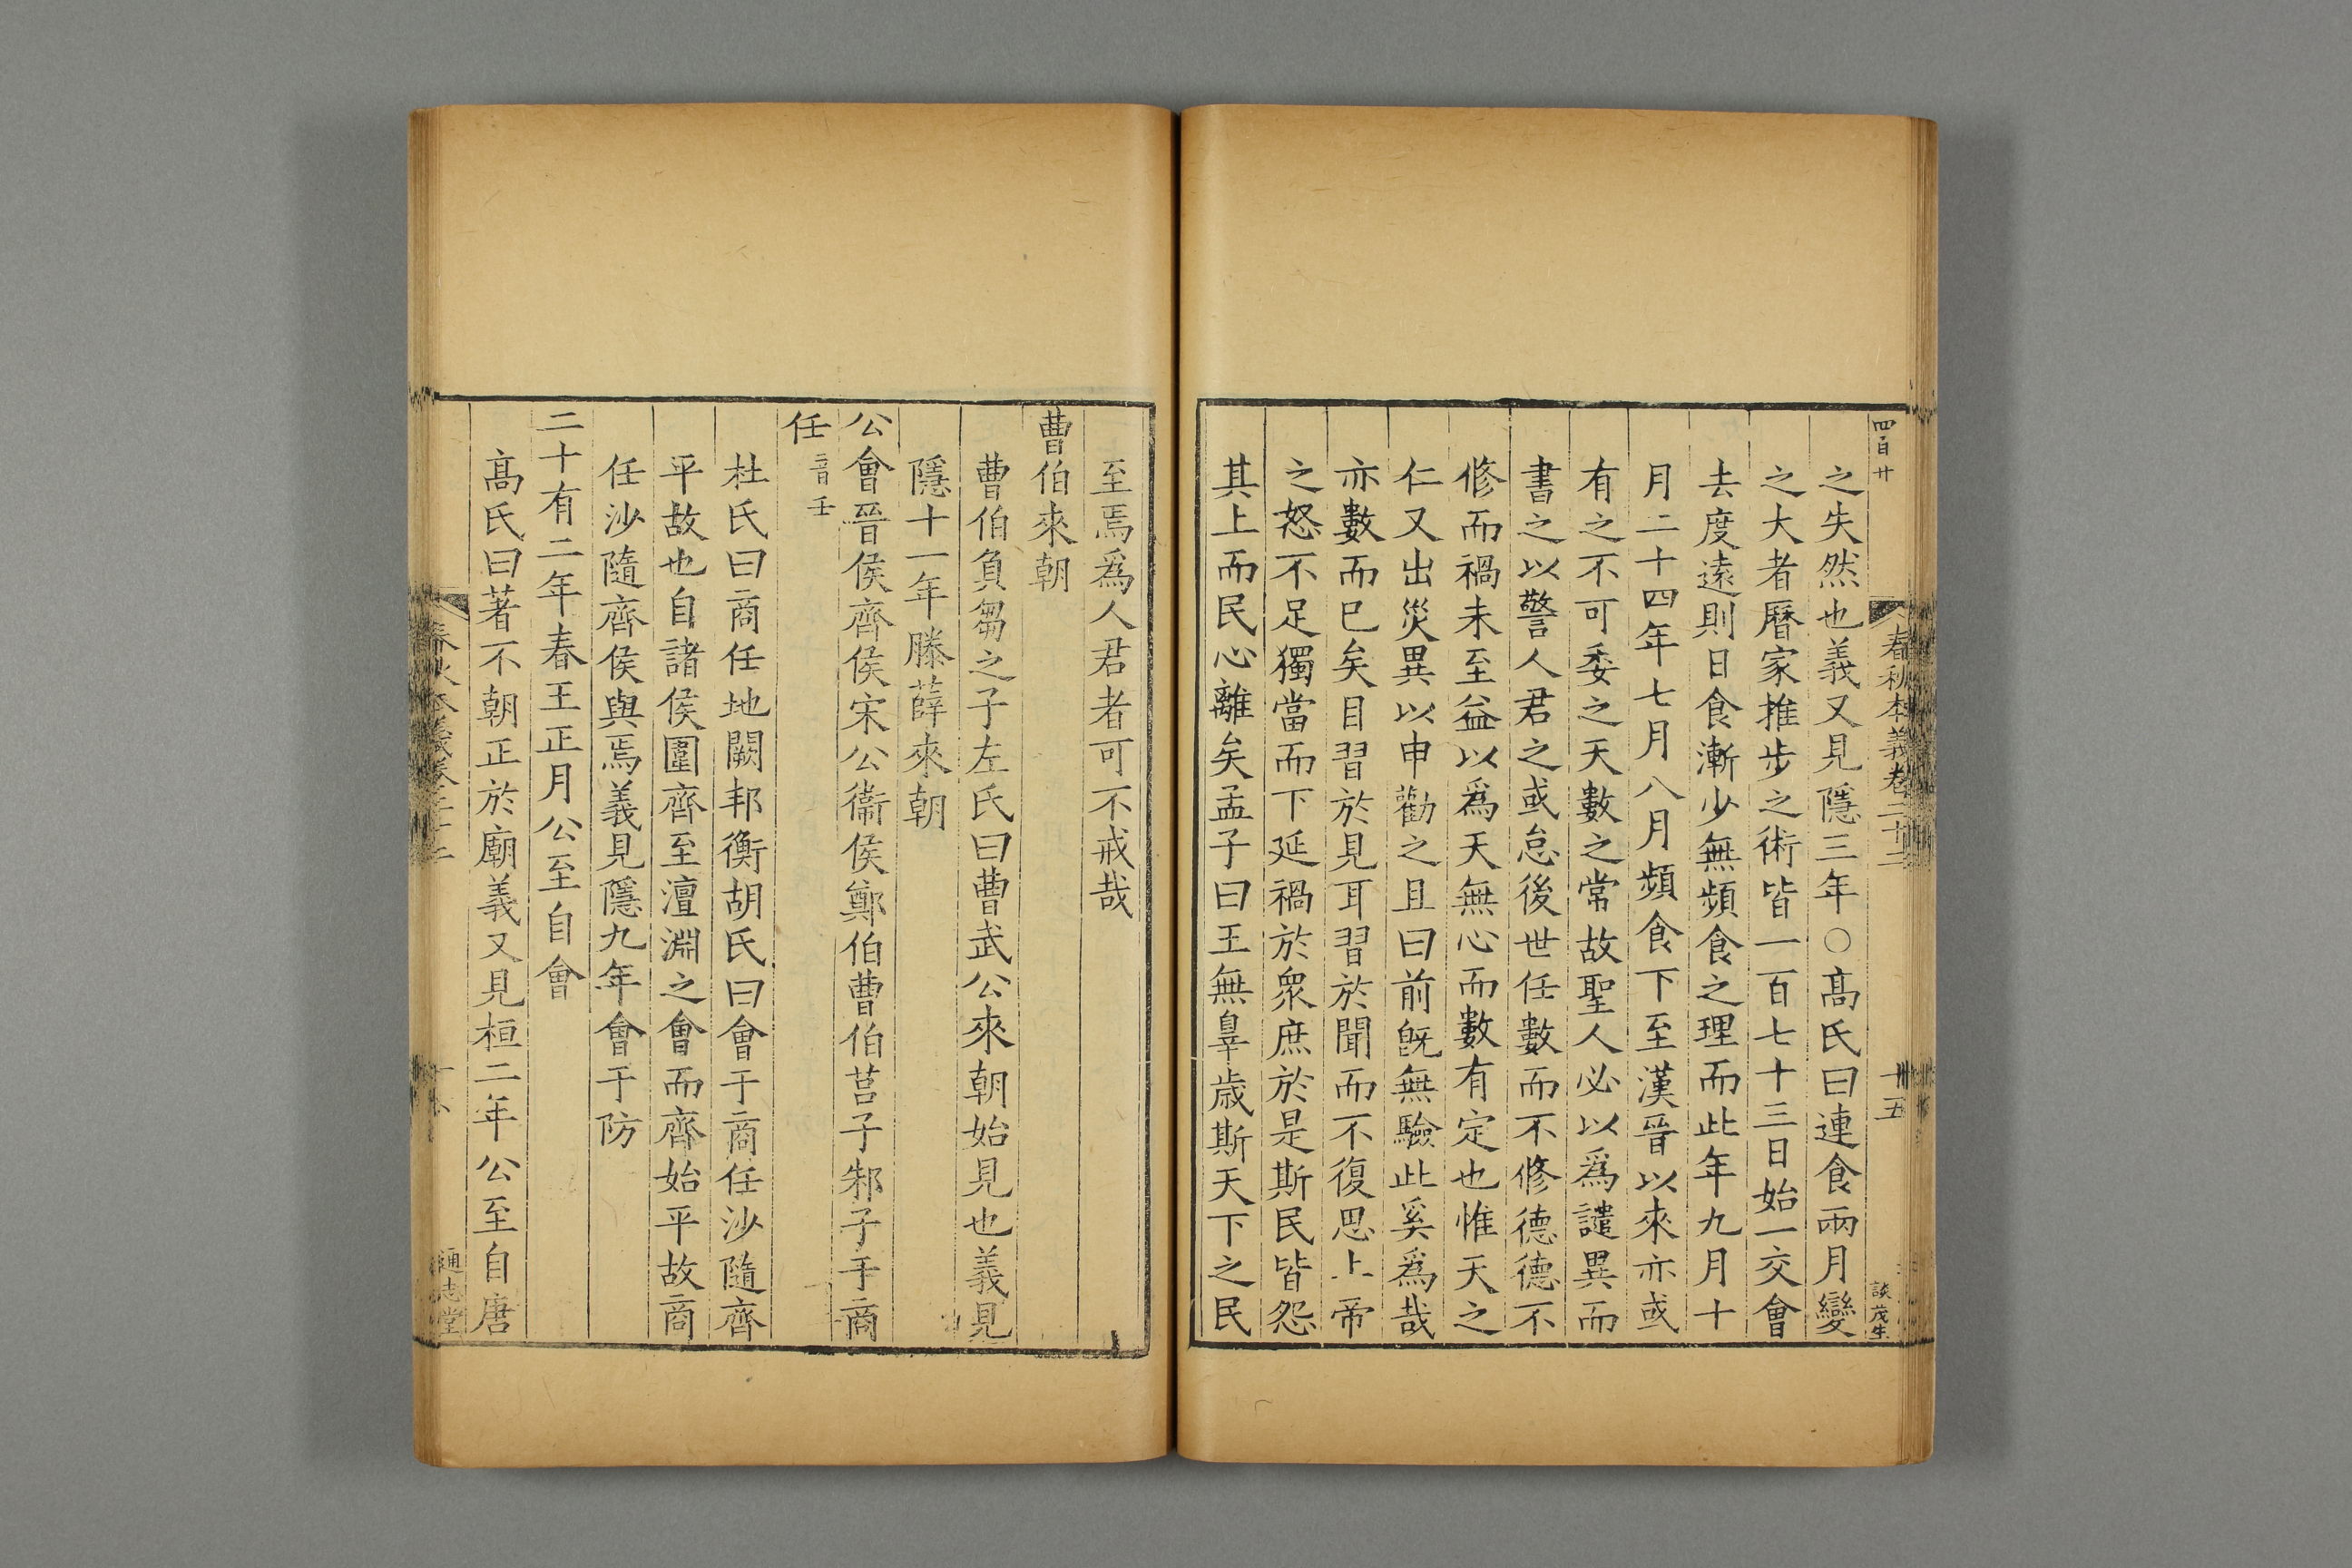 四百廿
春秋本義卷二十二
十五
談茂生
之失然也義又見隱三年○髙氏曰連食兩月變
之大者曆家推步之術皆一百七十三日始一交會
去度遠則日食漸少無頻食之理而此年九月十
月二十四年七月八月頻食下至漢晉以來亦或
有之不可委之天數之常故聖人必以爲譴異而
書之以警人君之或怠後世任數而不修德德不
修而禍未至益以爲天無心而數有定也惟天之
仁又出災異以申勸之且曰前旣無驗此奚爲哉
亦數而已矣目習於見耳習於聞而不復思上帝
之怒不足獨當而下延禍於衆庶於是斯民皆怨
其上而民心離矣孟子曰王無辠歲斯天下之民
至焉爲人君者可不戒哉
曹伯來朝
曹伯負芻之子左氏曰曹武公來朝始見也義見
隱十一年滕薛來朝
公會晉侯齊侯宋公衞侯鄭伯曹伯莒子邾子于商
任音壬
杜氏曰商任地闕邦衡胡氏曰會于商任沙隨齊
平故也自諸侯圍齊至澶淵之會而齊始平故商
任沙隨齊侯與焉義見隱九年會于防
二十有二年春王正月公至自會
髙氏曰著不朝正於廟義又見桓二年公至自唐
春秋本義卷二十二
通志堂